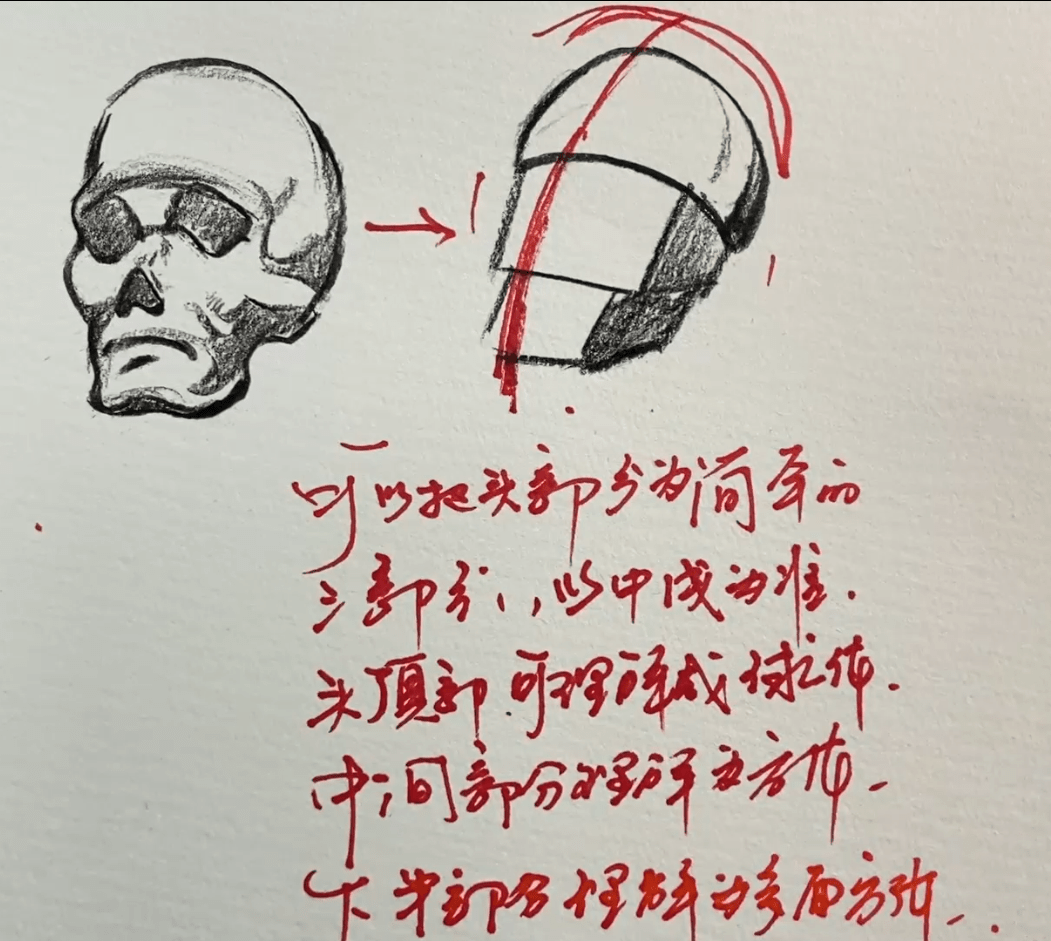 可以把头部分为简单的
三部分,以中线为准.
头顶部可理解成球体.
中间部分理解为方体.
下半部分理解为多面方形.